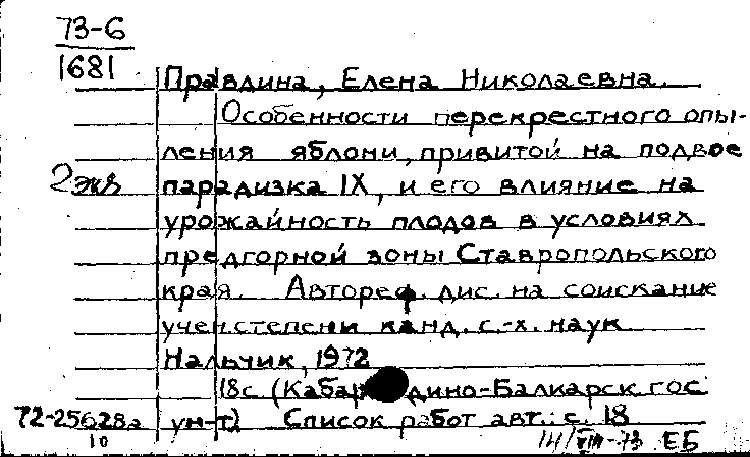 73-6
1681
Правдина, Елена Николаевна.
Особенности перекрестного опы-
ления яблони, привитой на подвое
2 экз парадизка IX, и его влияние на
урожайность плодов в условиях
предгорной зоны Ставропольского
края. Автореф. дис. на соискание
учен. степени канд. с.-х. наук
Нальчик, 1972
18 с. (Кабардино-Балкарск. гос
72-25628а ун-т) Список работ авт.: с. 18
10 14/VIII-73 ЕБ